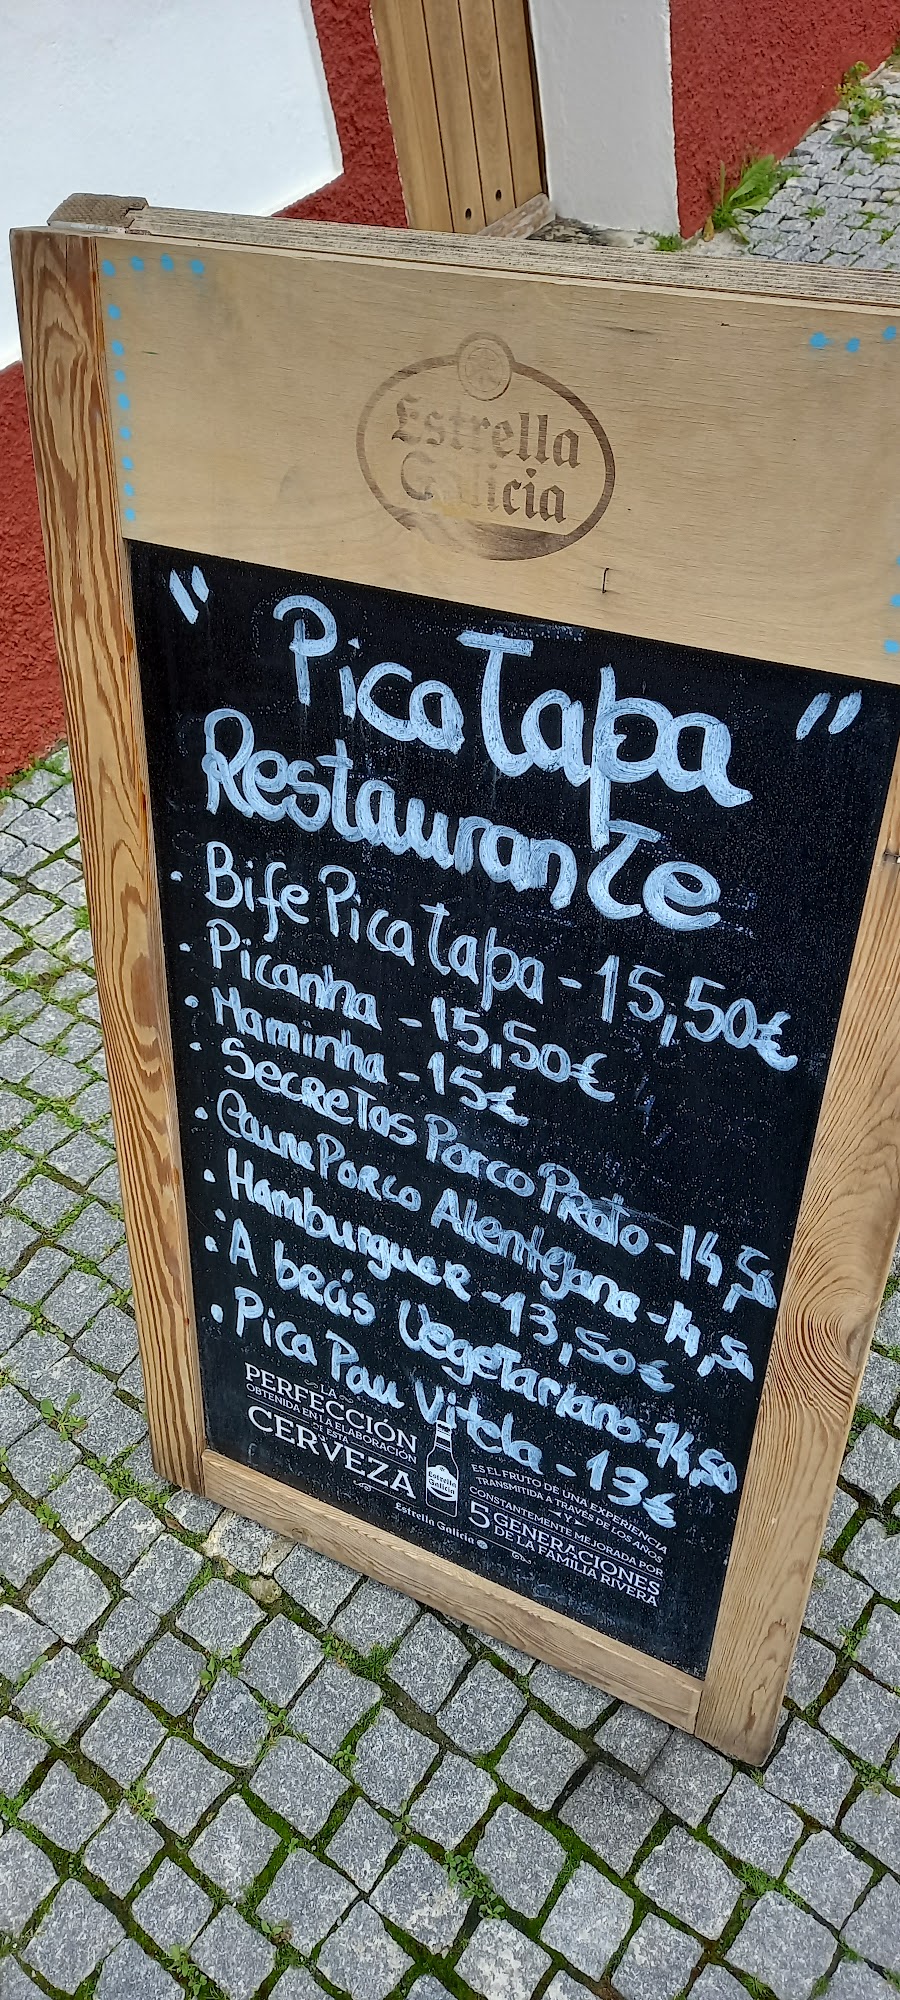 Estrella
Galicia
" Pica Tapa "
Restaurante
• Bife Pica Tapa - 15,50€
• Picanha - 15,50€
• Maminha - 15€
• Secretos Porco Preto - 14,50
• Carne Porco Alentejana - 14,50
• Hamburguer - 13,50€
• A brás Vegetariano - 14,50
• Pica Pau Vitela - 13€
LA
PERFECCIÓN
OBTENIDA EN LA ELABORACIÓN
DE ESTA
CERVEZA
Estrella
Galicia
Estrella Galicia
ES EL FRUTO DE UNA EXPERIENCIA
TRANSMITIDA A TRAVÉS DE LOS AÑOS
Y
CONSTANTEMENTE MEJORADA POR
5 GENERACIONES
DE LA FAMILIA RIVERA